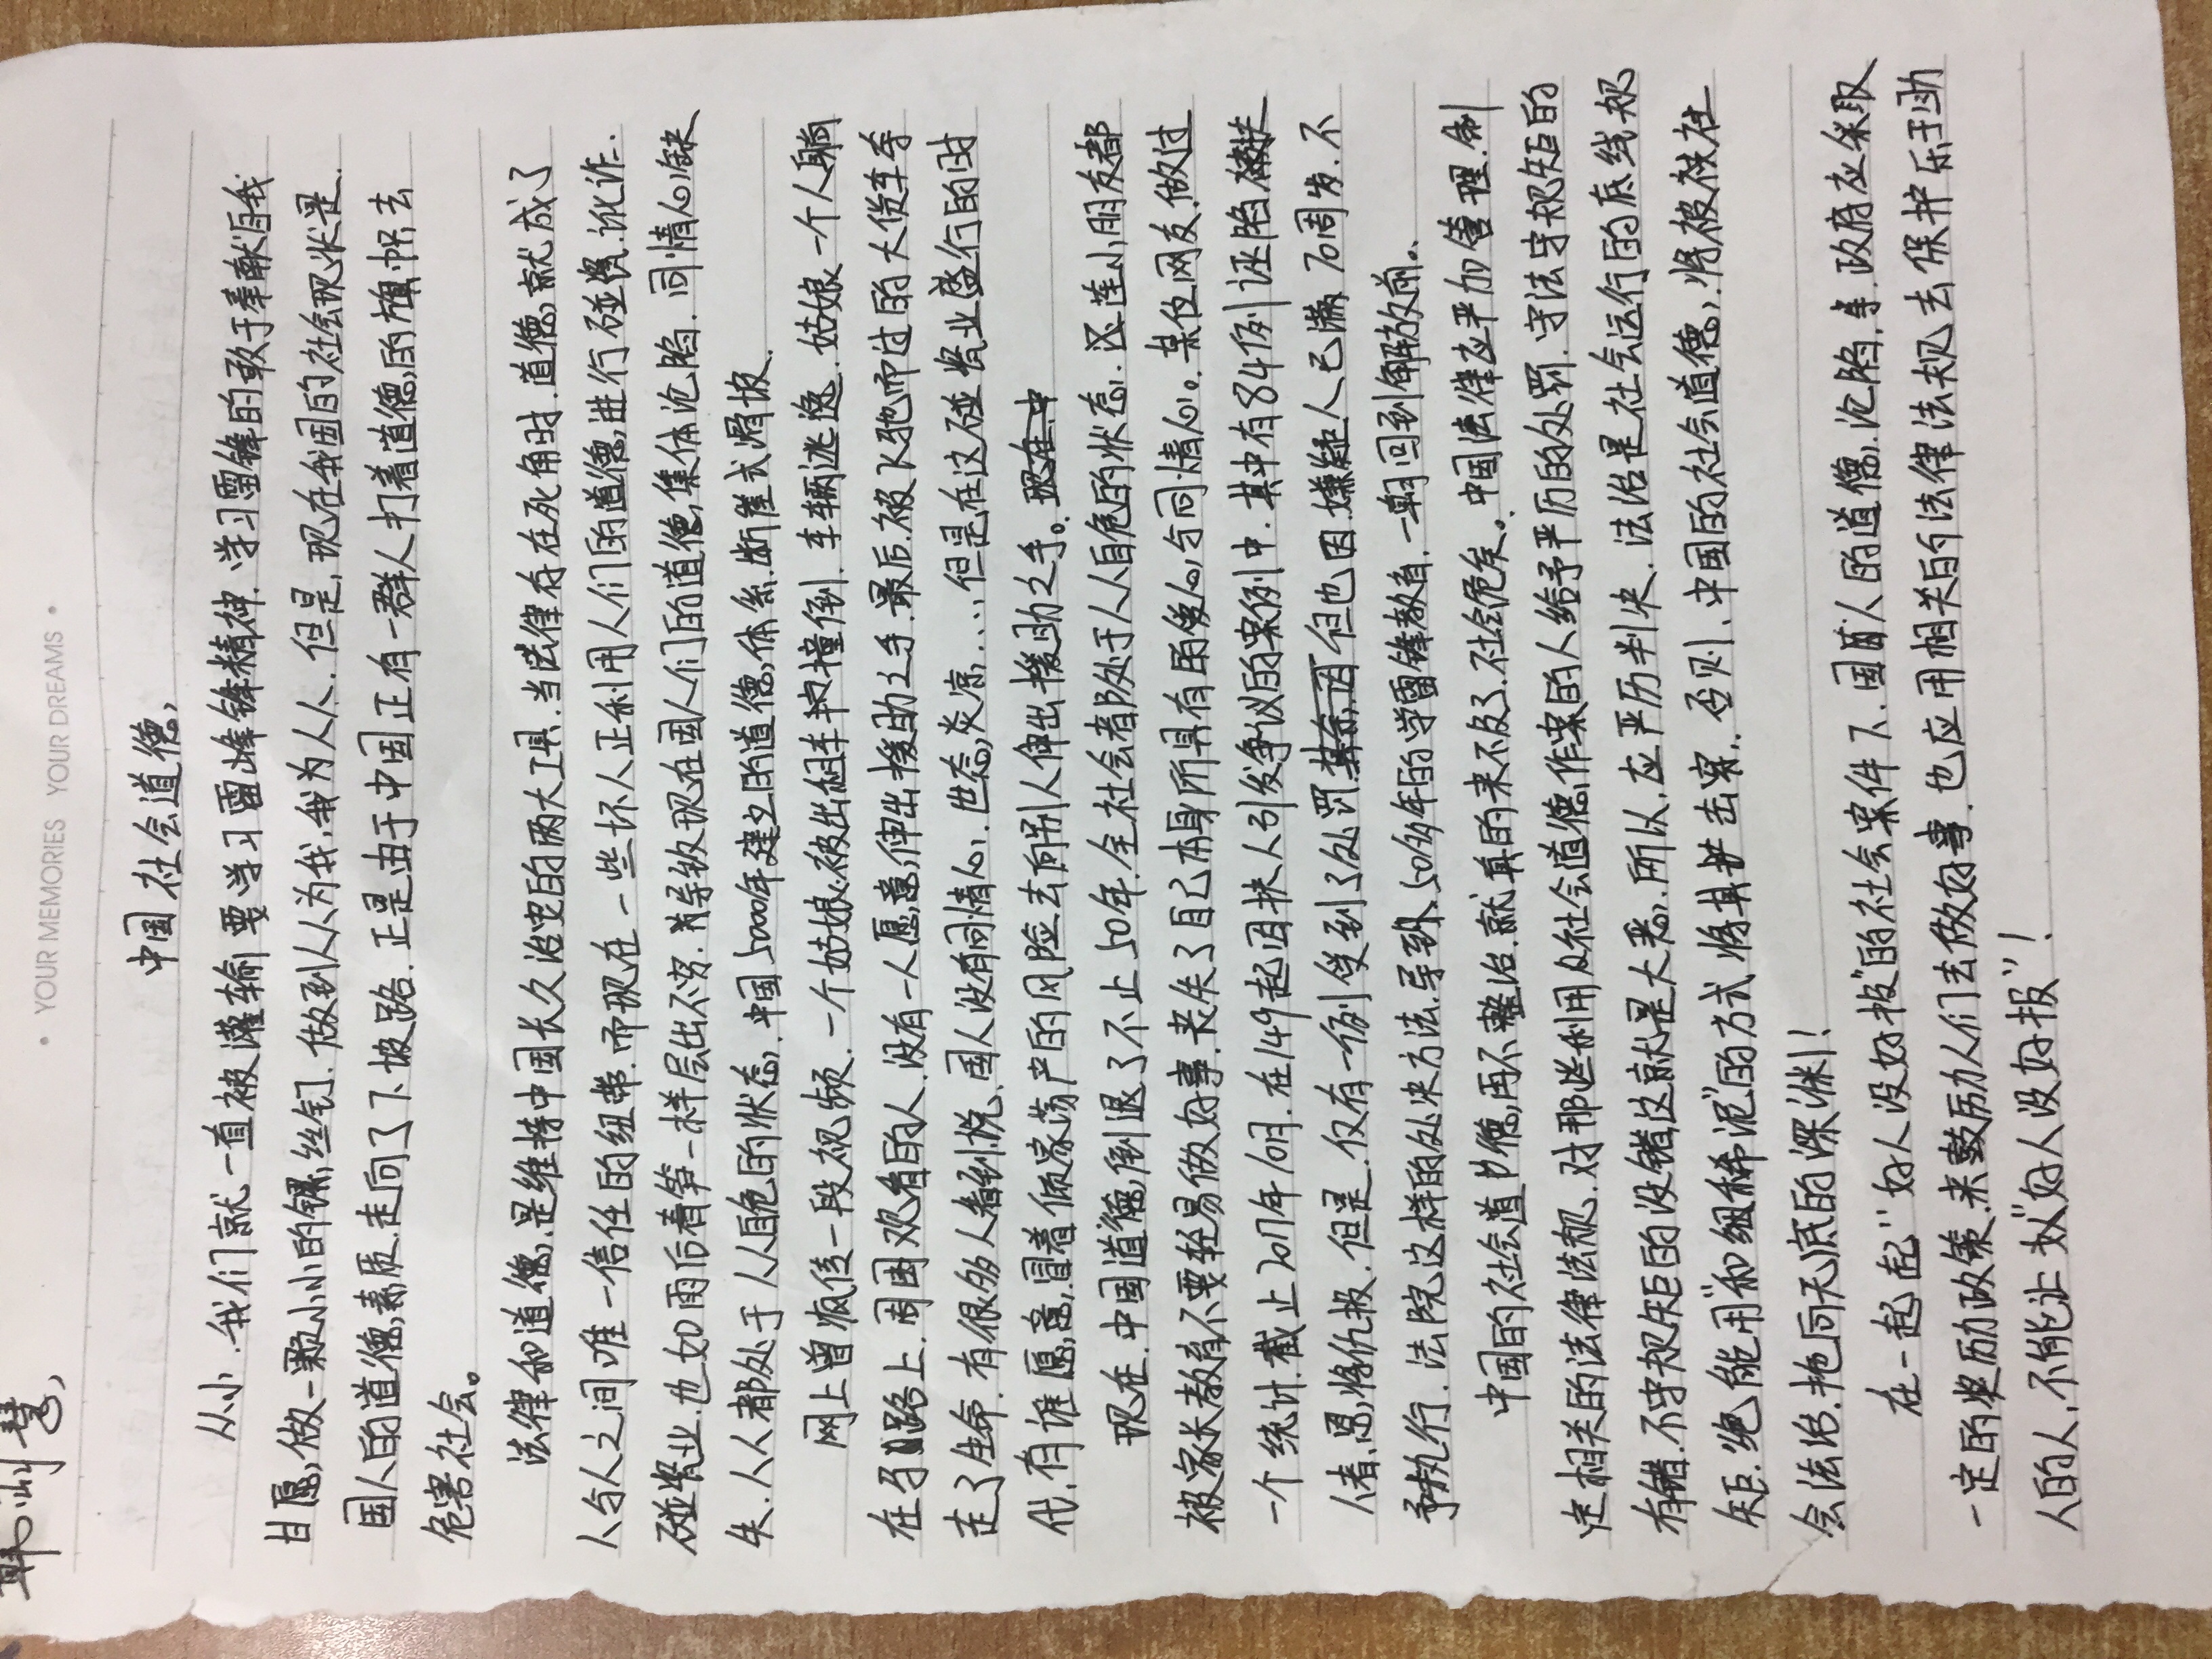 • YOUR MEMORIES YOUR DREAMS •
中国社会道德
从小.我们就一直被灌输要学习雷锋精神.学习雷锋的敢于奉献自我
甘愿做一颗小小的螺丝钉.做到人人为我,我为人人.但是,现在我国的社会现状是.
国人的道德,素质.走向了下坡路.正是由于中国正有一群人打着道德的旗帜去
危害社会。
法律和道德.是维持中国长久治安的两大工具.当法律存在死角时.道德就成了
人与人之间唯一信任的纽带.而现在一些坏人正利用人们的道德,进行碰瓷.讹诈.
碰瓷业.也如雨后春笋一样层出不穷.导致现在国人们的道德,集体沦陷.同情心缺
失.人人都处于人人自危的状态,中国5000年建立的道德体系.断崖式滑坡.
网上曾疯传一段视频.一个姑娘被出租车撞倒.车辆逃逸.姑娘一个人躺
在马路上.周围观看的人.没有一人愿意伸出援助之手.最后.被飞驰而过的大货车夺
走了生命.有很多人看到慌.国人没有同情心.世态炎凉...但是在这碰瓷业盛行的时
代.有谁愿意冒着倾家荡产的风险去向别人伸出援助之手。现在.中
现在.中国道德倒退了不止50年.全社会都处于人人自危的状态.还连小朋友都
被家长教育不要轻易做好事.丧失了自己本身所具有的爱心与同情心。某位网友.做过
一个统计.截止2017年10月.在149起因扶人引发争议的案例中.其中有84例诬陷搀扶
人者,恩将仇报.但是.仅有一例受到了处罚.但也因嫌疑人已满70周岁.不
予执行.法院这样的处决方法.导致50多年的学雷锋教育.一朝回到解放前。
中国的社会道德,再不整治.就真的来不及了.社会危矣。中国法律应严加管理.制
定相关的法律法规.对那些利用社会道德作案的人给予严厉的处罚.守法守规矩的
有错.不守规矩的没错这就是大恶.所以.应严厉判决.法治是社会运行的底线规
矩."绝能用"和细稀泥"的方式将其击案.否则.中国的社会道德.将被被社
会法治.拖向无底的深渊!
在一起起"好人没好报"的社会案件下.国人的道德沦陷.政府应采取
一定的奖励政策.来鼓励人们去做好事.也应用相关的法律法规去保护乐于助
人的人.不能让"好人没好报"!